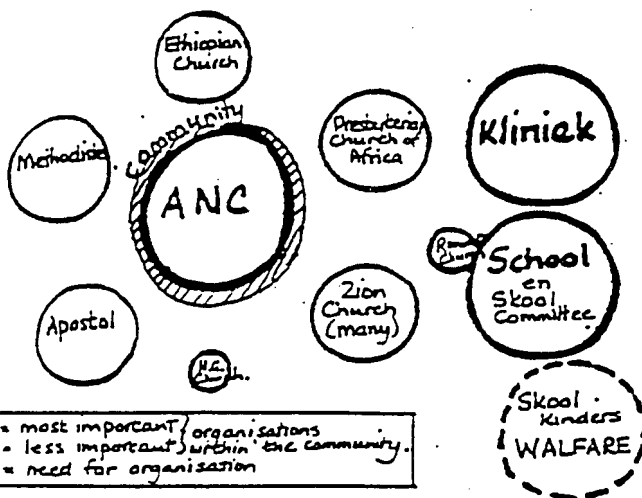 Ethiopian
Church
Community
Methodiste
ANC
Presbyterian
Church of
Africa
Kliniek
School
en
Skool
Committee
Apostol
Zion
Church
(many)
Church.
Skool
Kinders
WALFARE
= most important } organisations
= less important } within the community.
= need for organisation